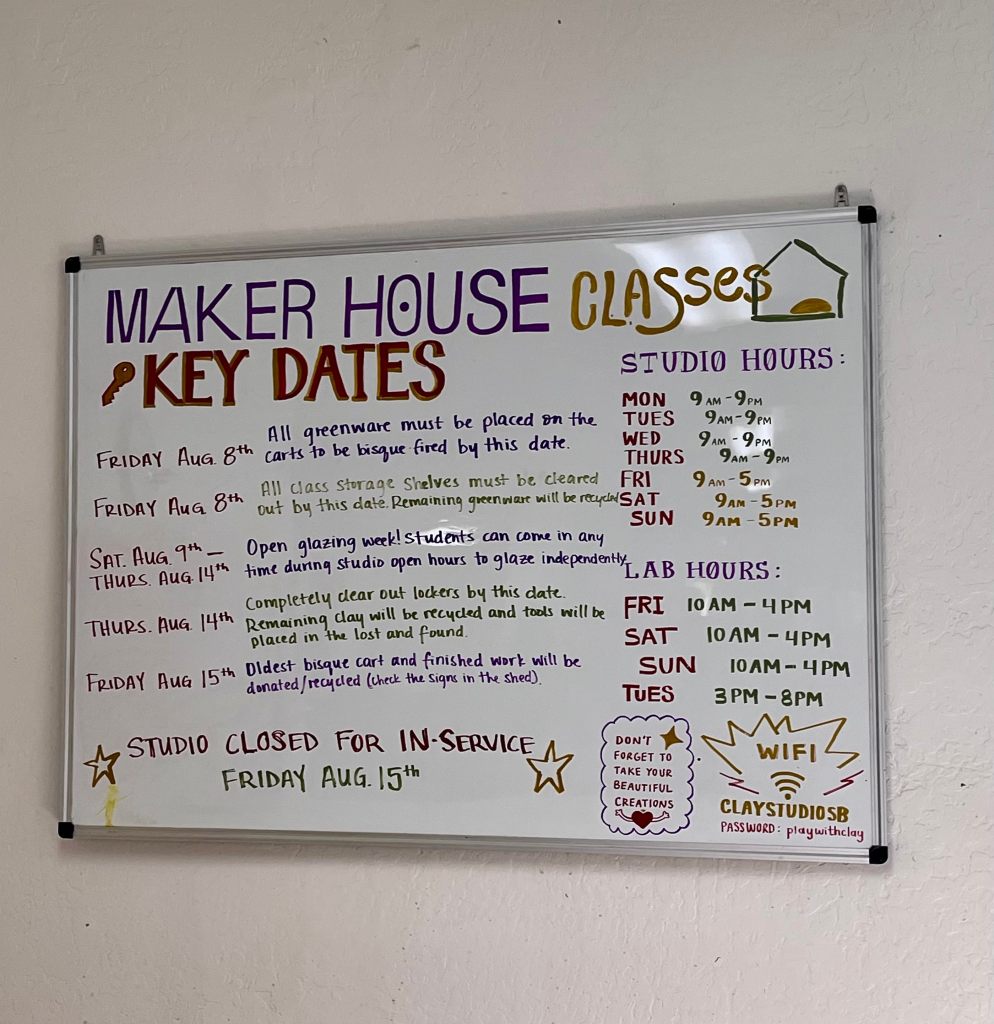 MAKER HOUSE CLASSES
KEY DATES
FRIDAY AUG. 8th
All greenware must be placed on the
carts to be bisque fired by this date.
FRIDAY AUG. 8th
All class storage shelves must be cleared
out by this date. Remaining greenware will be recycled
SAT. AUG. 9th —
THURS. AUG. 14th
Open glazing week! Students can come in any
time during studio open hours to glaze independently
THURS. AUG. 14th
Completely clear out lockers by this date.
Remaining clay will be recycled and tools will be
placed in the lost and found.
FRIDAY AUG 15th
Oldest bisque cart and finished work will be
donated/recycled (check the signs in the shed).
STUDIO CLOSED FOR IN-SERVICE
FRIDAY AUG. 15th
STUDIO HOURS:
MON 9AM-9PM
TUES 9AM-9PM
WED 9AM-9PM
THURS 9AM-9PM
FRI 9AM-5PM
SAT 9AM-5PM
SUN 9AM-5PM
LAB HOURS:
FRI 10AM-4PM
SAT 10AM-4PM
SUN 10AM-4PM
TUES 3PM-8PM
DON'T
FORGET TO
TAKE YOUR
BEAUTIFUL
CREATIONS
WIFI
CLAYSTUDIOSB
PASSWORD: playwithclay